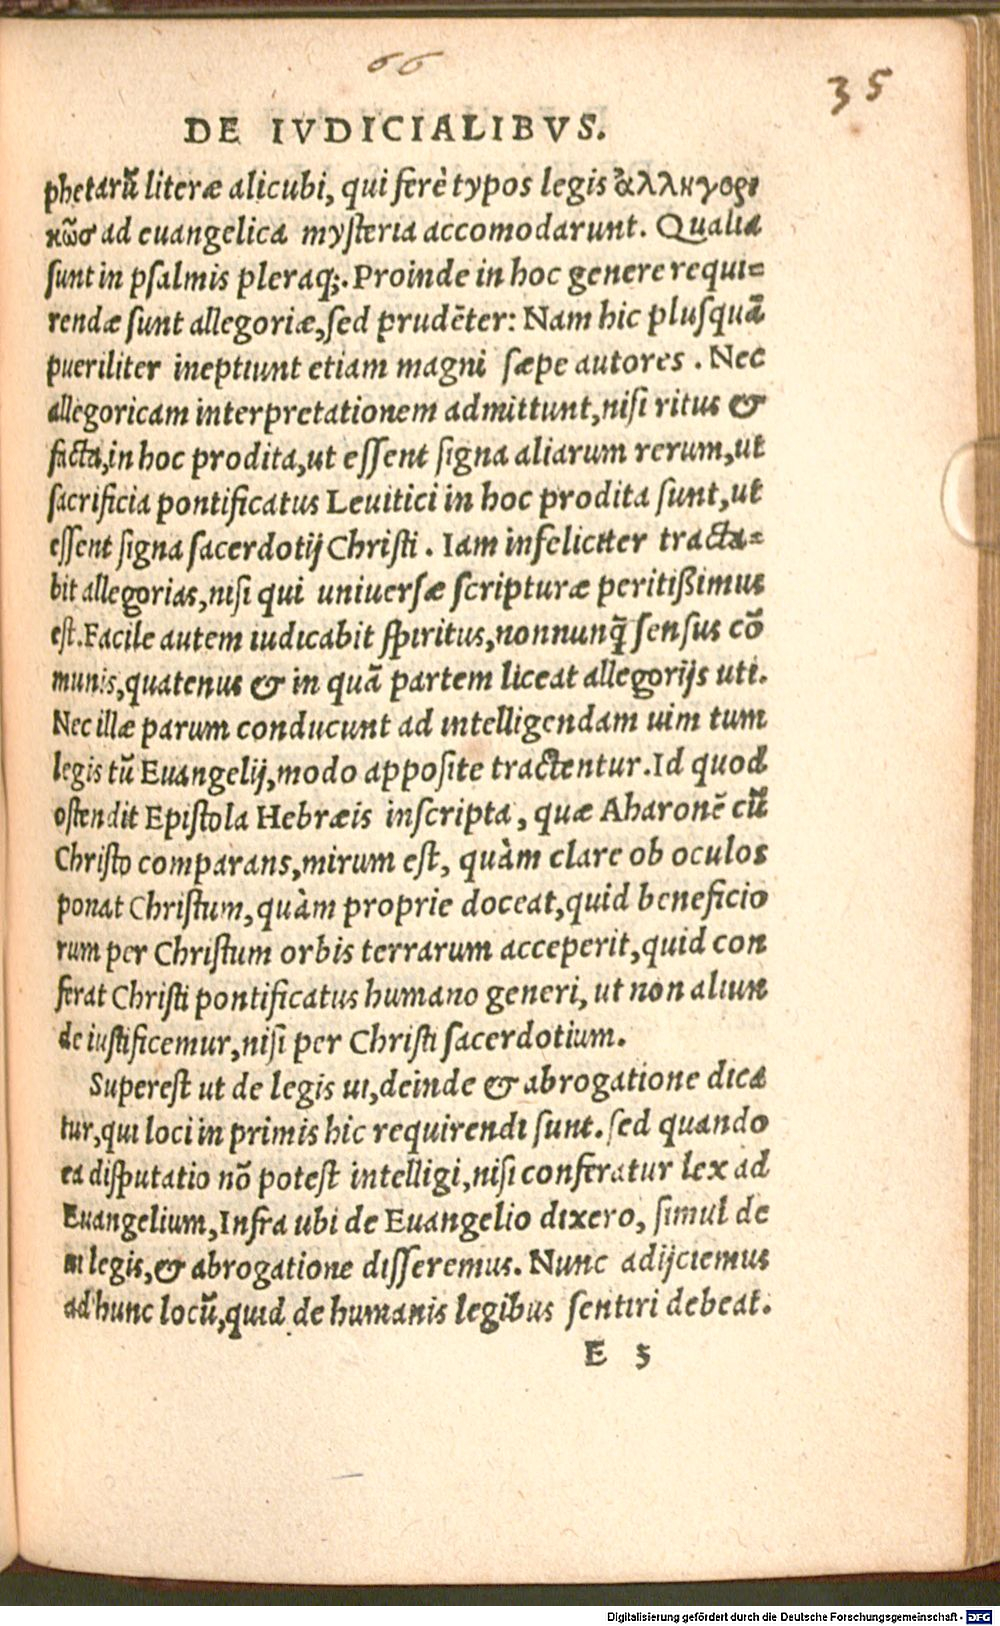 66
35
DE IVDICIALIBVS.
phetarũ literæ alicubi, qui ferè typos legis ἀλληγορι
κῶσ ad euangelica mysteria accomodarunt. Qualia
sunt in psalmis pleraq;. Proinde in hoc genere requi=
rendæ sunt allegoriæ, sed prudẽter: Nam hic plusquã
pueriliter ineptiunt etiam magni sæpe autores. Nec
allegoricam interpretationem admittunt, nisi ritus &
facta, in hoc prodita, ut essent signa aliarum rerum, ut
sacrificia pontificatus Leuitici in hoc prodita sunt, ut
essent signa sacerdotij Christi. Iam infeliciter tracta=
bit allegorias, nisi qui uniuersæ scripturæ peritißimus
est. Facile autem iudicabit spiritus, nonnunq̃ sensus cõ
munis, quatenus & in quã partem liceat allegorijs uti.
Nec illæ parum conducunt ad intelligendam uim tum
legis tũ Euangelij, modo apposite tractentur. Id quod
ostendit Epistola Hebræis inscripta, quæ Aharonẽ cũ
Christo comparans, mirum est, quàm clare ob oculos
ponat Christum, quàm proprie doceat, quid beneficio
rum per Christum orbis terrarum acceperit, quid con
ferat Christi pontificatus humano generi, ut non aliun
de iustificemur, nisi per Christi sacerdotium.
Superest ut de legis ui, deinde & abrogatione dica
tur, qui loci in primis hic requirendi sunt. sed quando
ea disputatio nõ potest intelligi, nisi conferatur lex ad
Euangelium, Infra ubi de Euangelio dixero, simul de
ui legis, & abrogatione disseremus. Nunc adijciemus
ad hunc locũ, quid de humanis legibus sentiri debeat.
E 5
Digitalisierung gefördert durch die Deutsche Forschungsgemeinschaft - DFG